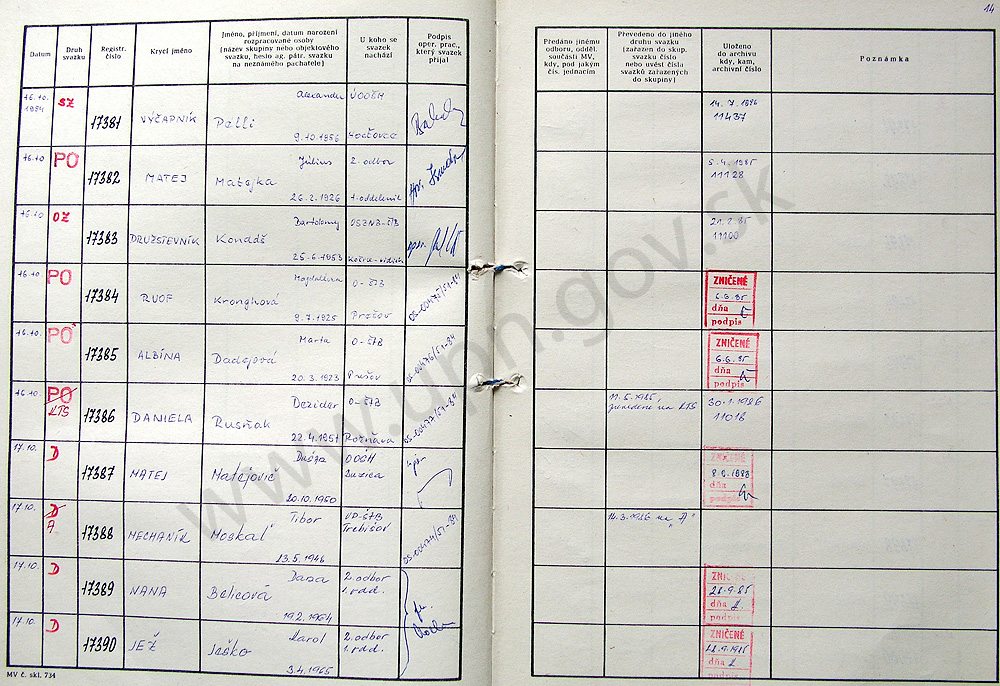 14
Datum
Druh svazku
Registr. číslo
Krycí jméno
Jméno, příjmení, datum narození rozpracované osoby (název skupiny nebo objektového svazku, heslo ag. pátr. svazku na neznámého pachatele)
U koho se svazek nachází
Podpis oper. prac., který svazek přijal
Předáno jinému odboru, odděl. součásti MV, kdy, pod jakým čís. jednacím
Převedeno do jiného druhu svazku (zařazen do skup. svazku číslo nebo uvést číslo svazků zařazených do skupiny)
Uloženo do archivu kdy, kam, archivní číslo
Poznámka
16.10. 1984 SZ 17381 VÝČAPNÍK Alexander Palli 9.10.1956
14.7.1986 11437
16.10 PO 17382 MATEJ Július Matejka 26.2.1926 2. odbor 1. oddelenie
5.4.1985 11128
16.10 OZ 17383 DRUŽSTEVNÍK Bartolomej Konadš 25.6.1953
21.2.85 11100
16.10 PO 17384 RUOF Magdaléna Kronghová 9.7.1925 O-ŠTB Prešov OS-00475/51-84
ZNIČENÉ 6.6.85 dňa podpis
16.10. PO 17385 ALBÍNA Marta Dadejová 20.3.1923 O-ŠTB Prešov OS-00476/51-84
ZNIČENÉ 6.6.85 dňa podpis
16.10. PO KTS 17386 DANIELA Dezider Rusňak 22.4.1951 O-ŠTB Rožňava OS-00477/51-84
17.5.1985, zavedené na KTS
30.1.1986 11018
17.10. D 17387 MATEJ Matejovič 20.10.1950
ZNIČENÉ dňa podpis
17.10. D A 17388 MECHANIK Tibor Moskaľ 13.5.1946 VP-ŠTB Trebišov OS-00474/51-84
14.3.1986 na "A"
17.10. D 17389 NANA Dasa Belicová 19.2.1964 2. odbor 1. odd.
ZNIČENÉ 28.9.85 dňa podpis
17.10. D 17390 JEŽ Karol Ješko 3.4.1965 2. odbor 1. odd.
ZNIČENÉ dňa podpis
MV č. skl. 734
www.upn.gov.sk